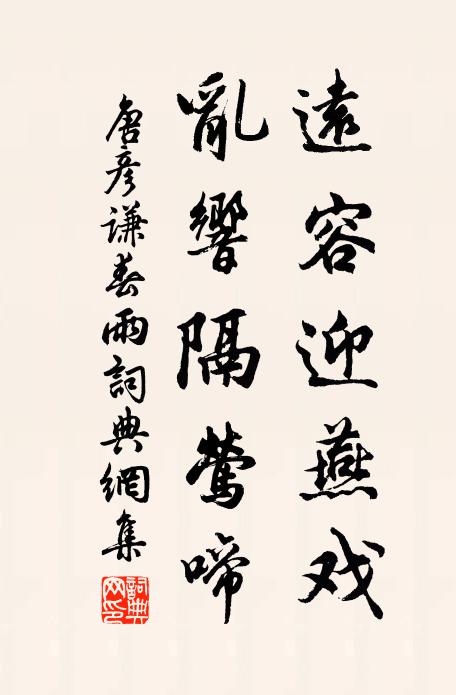 遠容迎燕戏
亂響隔鶯啼
唐彦謙春雨詞典網集
詞典
网印